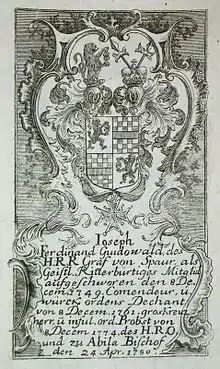 Joseph
Ferdinand Guidowald, des
H.R.R. Graf von Spaur, als
Geistl. Ritterbürtiges Mitglid
aufgeschworen den 8 De-
cem. 1749. Comendeur, u.
würckl. ordens Dechant
von 8 Decem. 1761. großkreuz
herr, u. inful. ord. Probst von
8 Decem. 1774. des H.R.O.
und zu Abila Bischof
den 24 Apr. 1780.